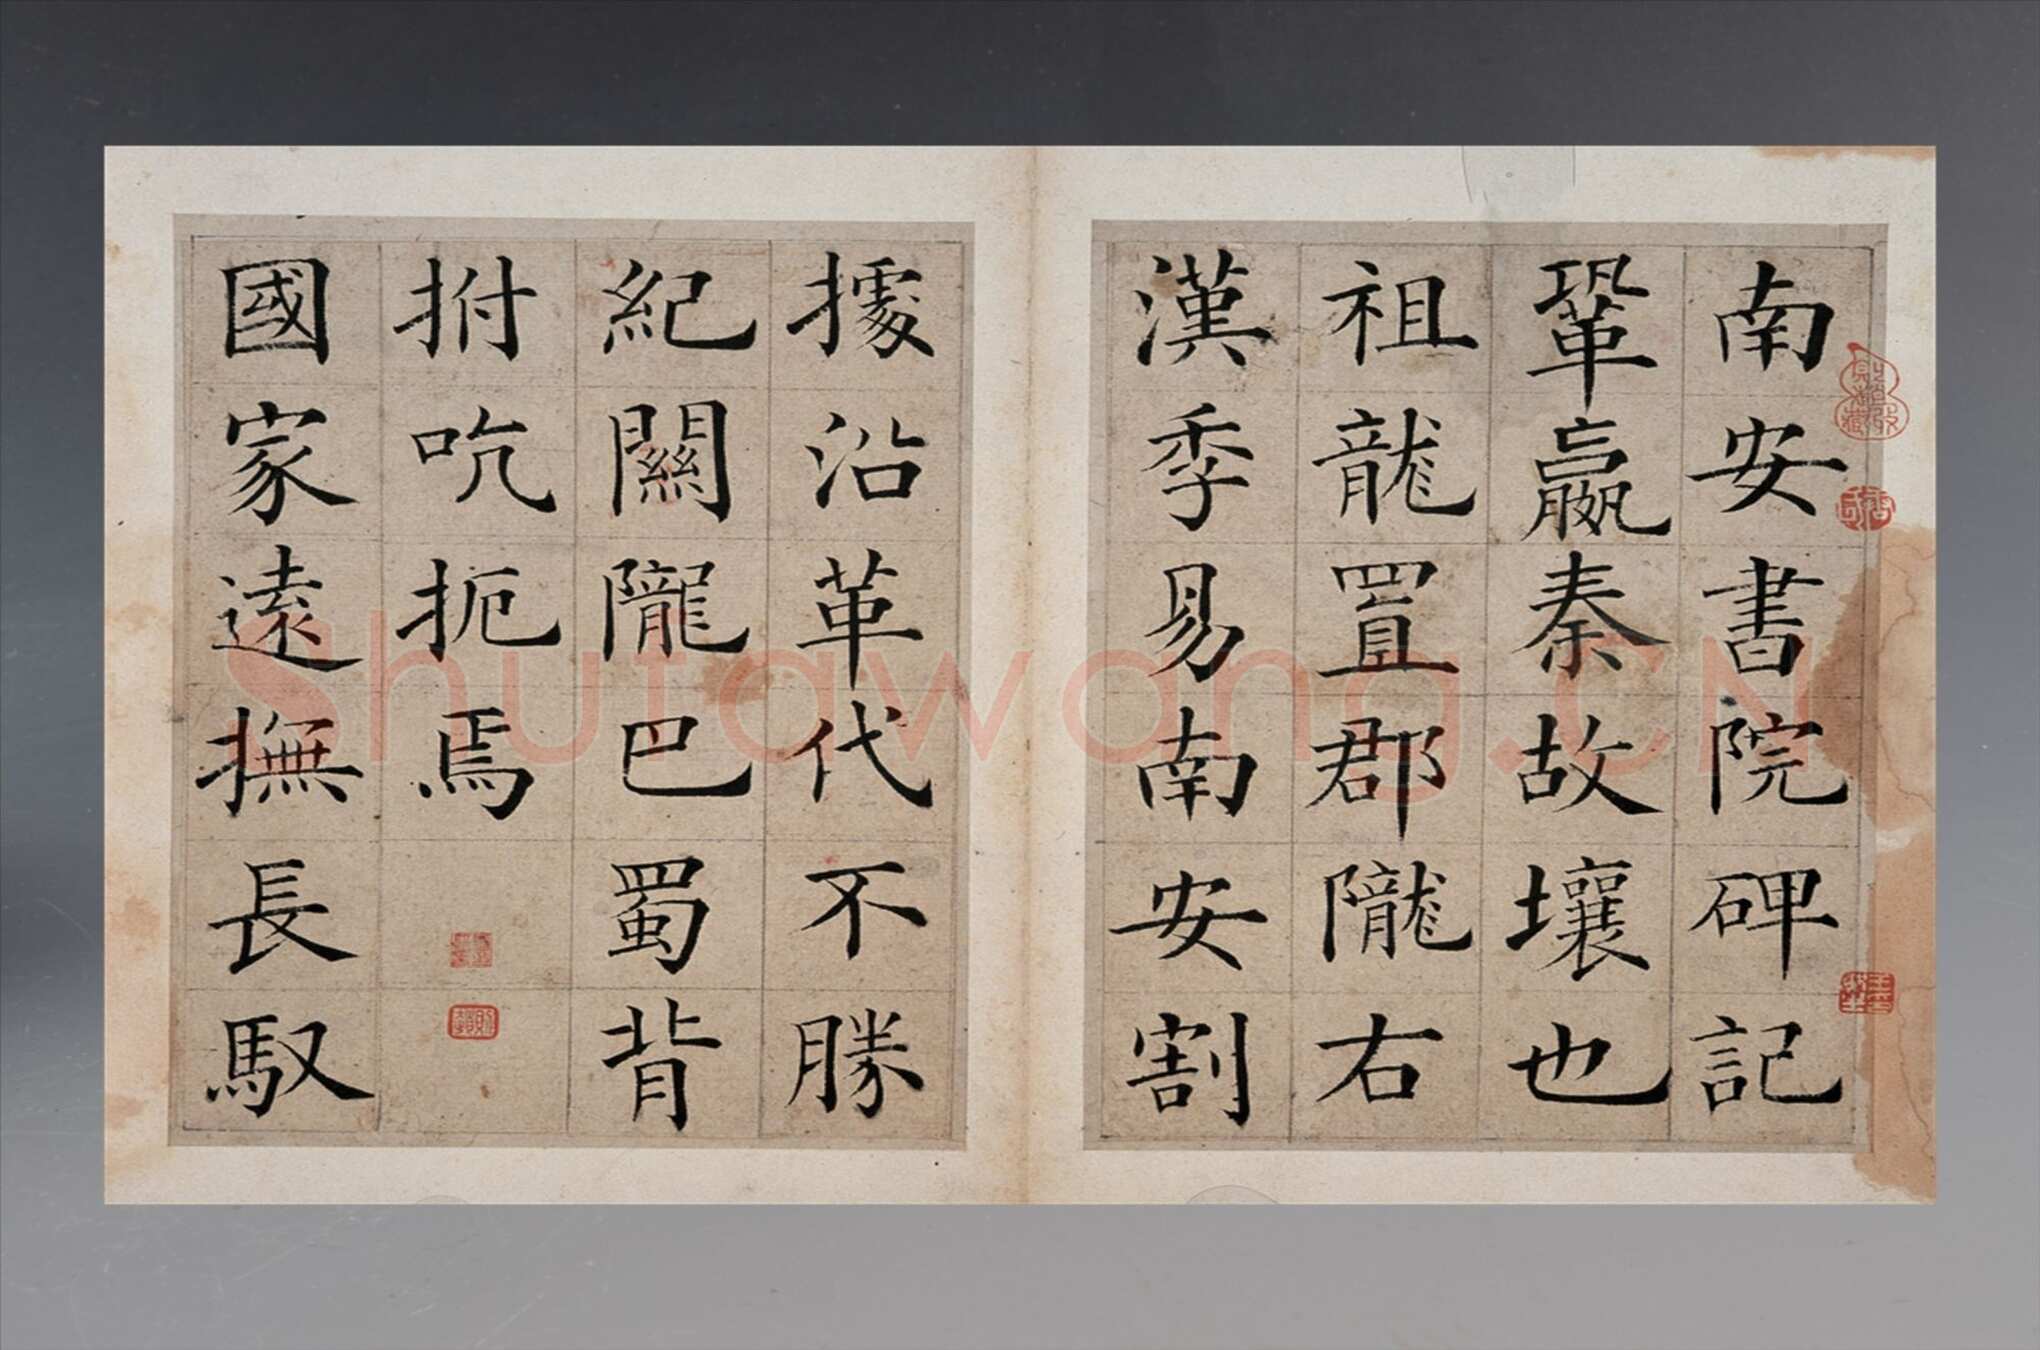 南安書院碑記
鞏嬴秦故壤也
祖龍置郡隴右
漢季易南安割
據沿革代不勝
紀關隴巴蜀背
拊吭扼焉
國家遠撫長馭
Shufawang.CN